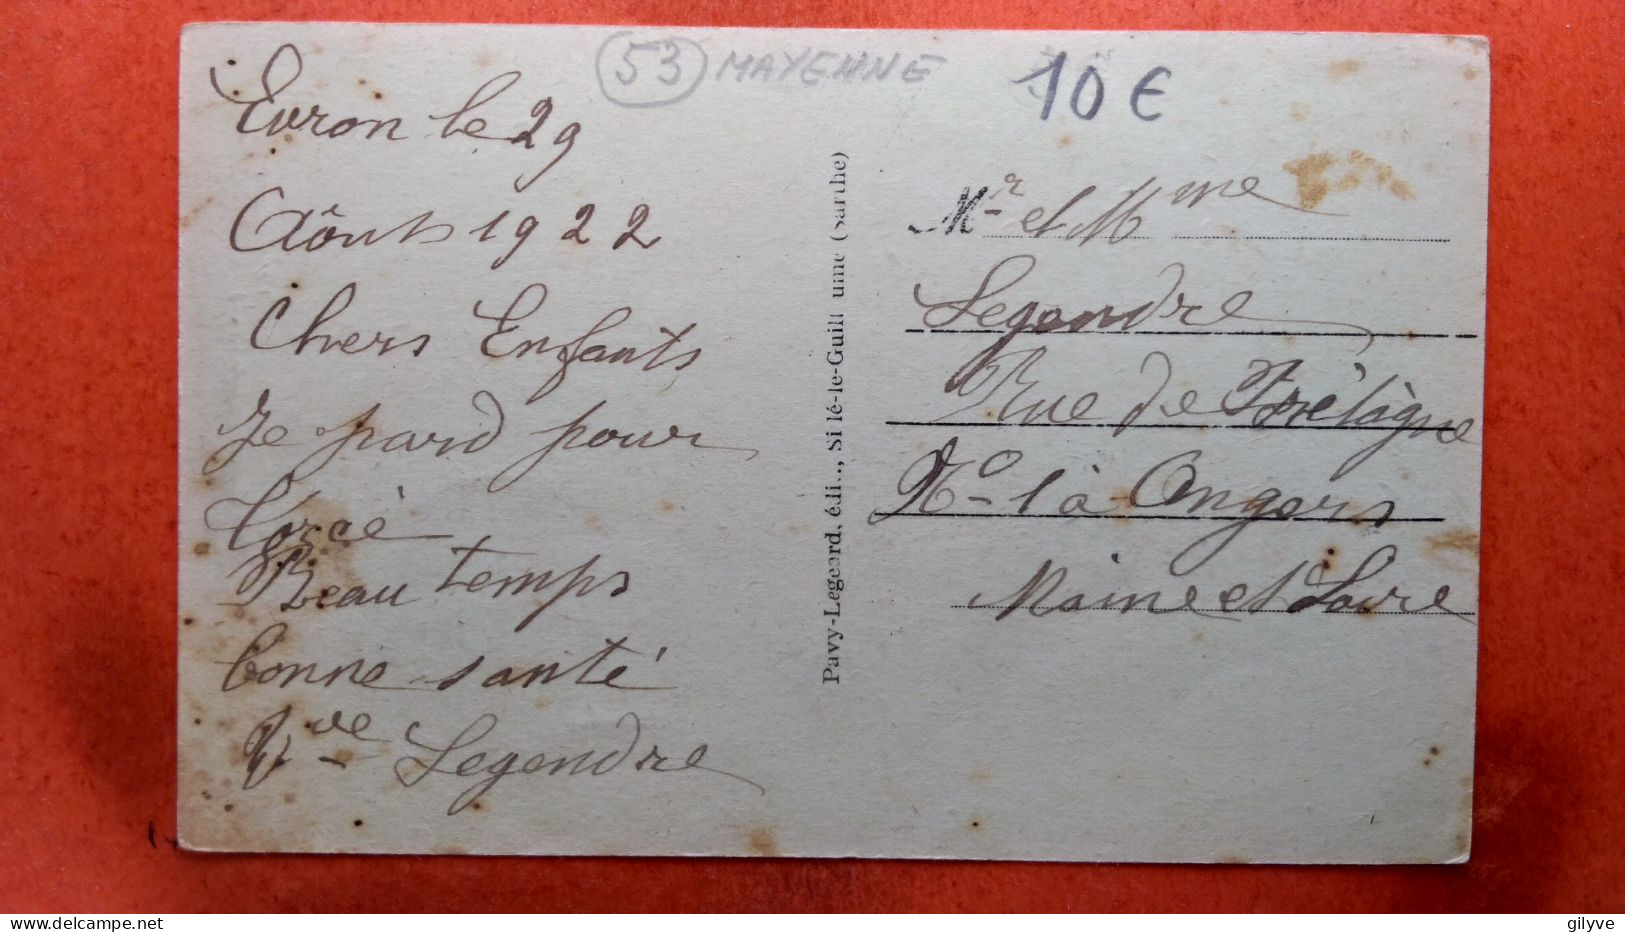 53 MAYENNE
10 €
Evron le 29
Aôuts 1922
Chers Enfants
Je pard pour
Torcé
Beau temps
bonne santé
Vve Legendre
Pavy-Legeard, édi.., Sillé-le-Guillaume (Sarthe)
Mr et Mme
Legendre
Rue de Brétâgne
No 1 à Angers
Maine et Loire
delcampe.net
gilyve